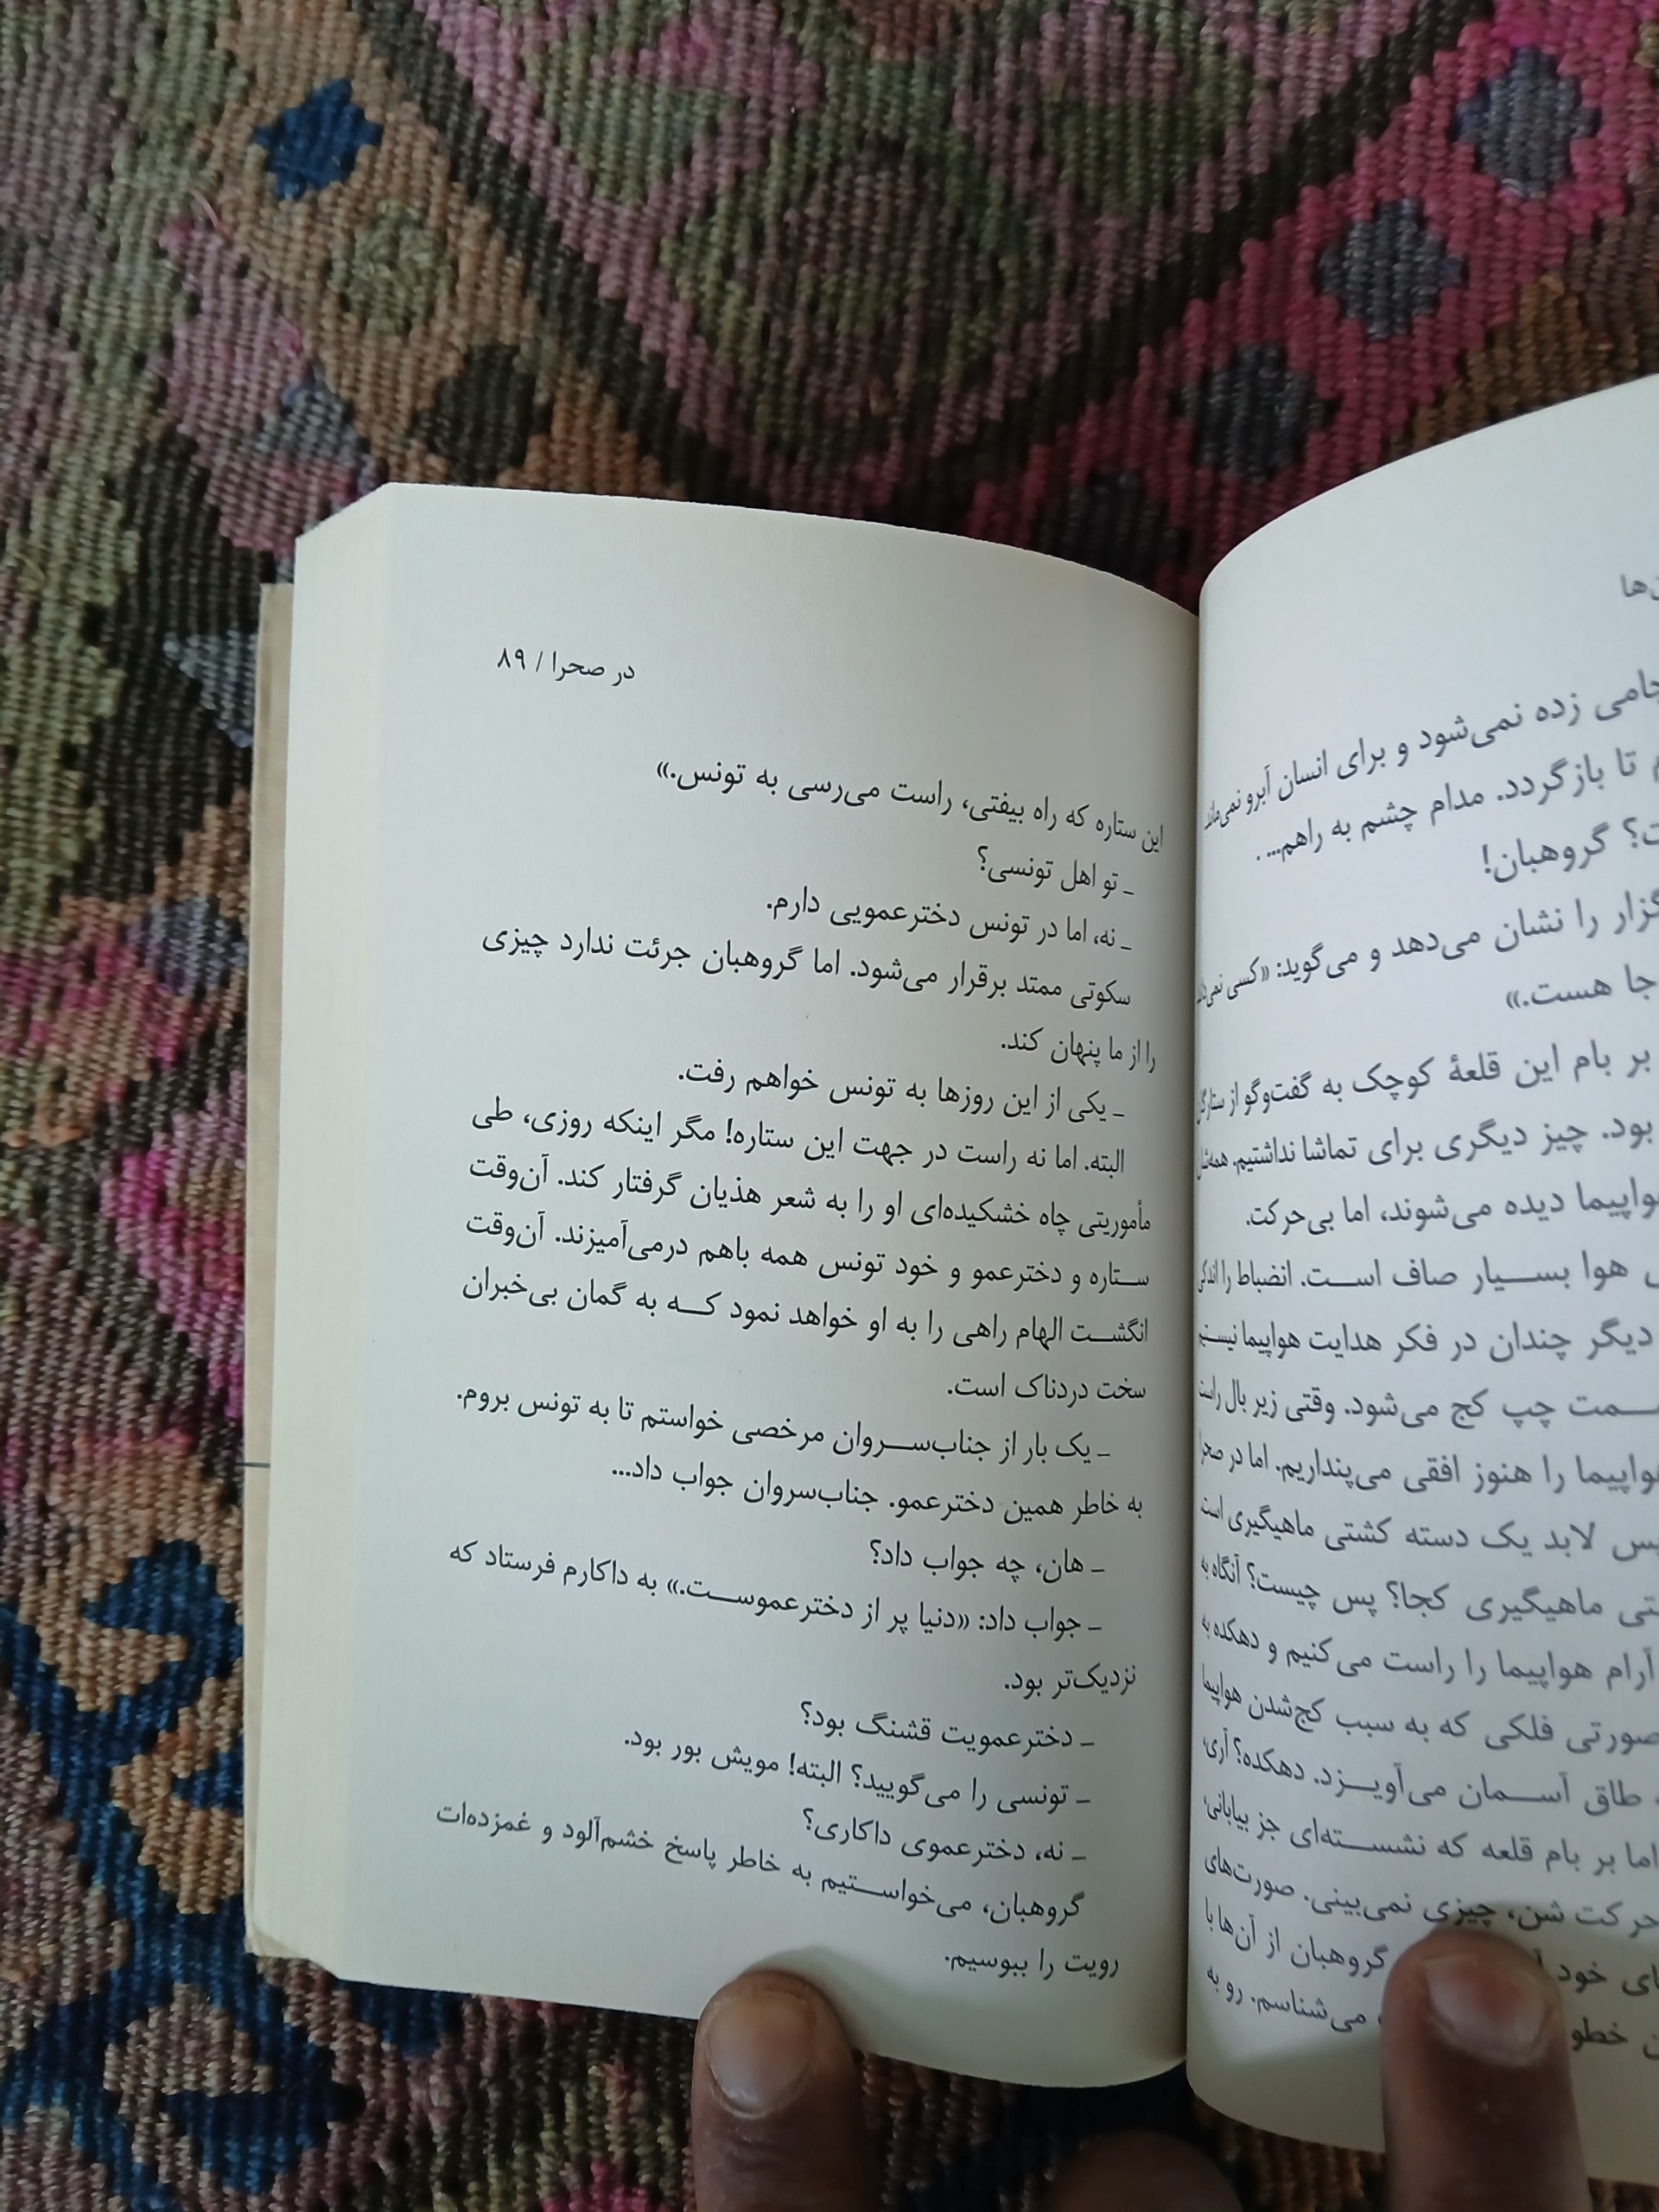 ن‌ها
جامی زده نمی‌شود و برای انسان آبرو نمی‌ماند.
تا بازگردد. مدام چشم به راهم... .
ت؟ گروهبان!
گزار را نشان می‌دهد و می‌گوید: «کسی نمی‌داند
جا هست.»
بر بام این قلعهٔ کوچک به گفت‌وگو از ستارگان
بود. چیز دیگری برای تماشا نداشتیم. همه‌شان
هواپیما دیده می‌شوند، اما بی‌حرکت.
هوا بسیار صاف است. انضباط را اندکی
دیگر چندان در فکر هدایت هواپیما نیستیم
سمت چپ کج می‌شود. وقتی زیر بال راست
هواپیما را هنوز افقی می‌پنداریم. اما در صحرا
پس لابد یک دسته کشتی ماهیگیری است
تی ماهیگیری کجا؟ پس چیست؟ آنگاه به
آرام هواپیما را راست می‌کنیم و دهکده به
صورتی فلکی که به سبب کج‌شدن هواپیما
طاق آسمان می‌آویزد. دهکده؟ آری،
اما بر بام قلعه که نشسته‌ای جز بیابانی،
حرکت شن، چیزی نمی‌بینی. صورت‌های
ای خود گروهبان از آن‌ها با
خطو می‌شناسم. رو به
در صحرا / ۸۹
این ستاره که راه بیفتی، راست می‌رسی به تونس.»
ـ تو اهل تونسی؟
ـ نه، اما در تونس دخترعمویی دارم.
سکوتی ممتد برقرار می‌شود. اما گروهبان جرئت ندارد چیزی
را از ما پنهان کند.
ـ یکی از این روزها به تونس خواهم رفت.
البته. اما نه راست در جهت این ستاره! مگر اینکه روزی، طی
مأموریتی چاه خشکیده‌ای او را به شعر هذیان گرفتار کند. آن‌وقت
ستاره و دخترعمو و خود تونس همه باهم درمی‌آمیزند. آن‌وقت
انگشت الهام راهی را به او خواهد نمود که به گمان بی‌خبران
سخت دردناک است.
ـ یک بار از جناب‌سروان مرخصی خواستم تا به تونس بروم.
به خاطر همین دخترعمو. جناب‌سروان جواب داد...
ـ هان، چه جواب داد؟
ـ جواب داد: «دنیا پر از دخترعموست.» به داکارم فرستاد که
نزدیک‌تر بود.
ـ دخترعمویت قشنگ بود؟
ـ تونسی را می‌گویید؟ البته! مویش بور بود.
ـ نه، دخترعموی داکاری؟
گروهبان، می‌خواستیم به خاطر پاسخ خشم‌آلود و غمزده‌ات
رویت را ببوسیم.